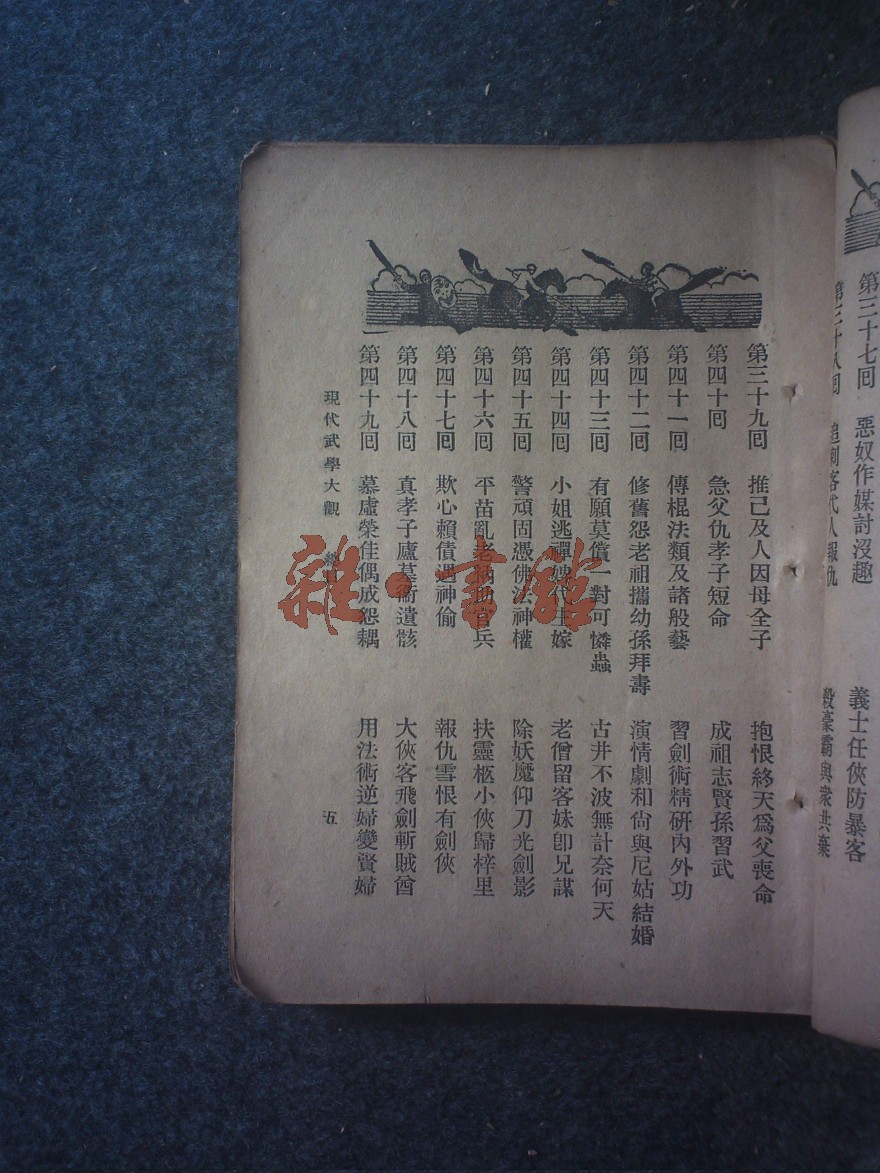 第三十七回 惡奴作媒討沒趣 義士任俠防暴客
第三十八回 追劍客代人報仇 殺豪霸與衆共棄
第三十九回 推己及人因母全子 抱恨終天爲父喪命
第四十回 急父仇孝子短命 成祖志賢孫習武
第四十一回 傳棍法類及諸般藝 習劍術精硏內外功
第四十二回 修舊怨老祖攜幼孫拜壽 演情劇和尙與尼姑結婚
第四十三回 有願莫償一對可憐蟲 古井不波無計奈何天
第四十四回 小姐逃禪婢代主嫁 老僧留客妹卽兄謀
第四十五回 警頑固憑佛法神權 除妖魔仰刀光劍影
第四十六回 平苗亂老衲助官兵 扶靈柩小俠歸梓里
第四十七回 欺心賴債遇神偷 報仇雪恨有劍俠
第四十八回 真孝子廬墓衞遺骸 大俠客飛劍斬賊酋
第四十九回 慕虛榮佳偶成怨耦 用法術逆婦變賢婦
現代武學大觀 總目 五
雜·書館